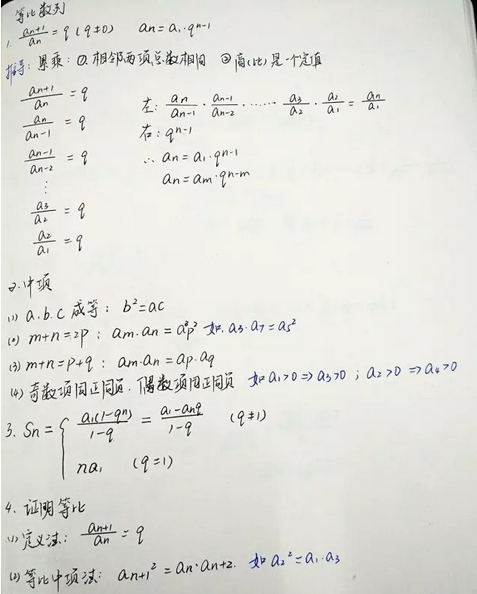 等比数列
1. aₙ₊₁/aₙ = q (q≠0) aₙ = a₁·qⁿ⁻¹
推导: 累乘: ①相邻两项总数相同 ②商(比)是一个定值
aₙ₊₁/aₙ = q
左: aₙ/aₙ₋₁ · aₙ₋₁/aₙ₋₂ · …… · a₃/a₂ · a₂/a₁ = aₙ/a₁
aₙ/aₙ₋₁ = q
右: qⁿ⁻¹
aₙ₋₁/aₙ₋₂ = q
∴ aₙ = a₁·qⁿ⁻¹
aₙ = aₘ·qⁿ⁻ᵐ
⋮
a₃/a₂ = q
a₂/a₁ = q
2. 中项
(1) a.b.c 成等: b²=ac
(2) m+n=2p: aₘ.aₙ = aₚ² 如 a₃.a₇ = a₅²
(3) m+n=p+q: aₘ.aₙ = aₚ.a_q
(4) 奇数项同正同负. 偶数项同正同负 如 a₁>0 ⇒ a₃>0 ; a₂>0 ⇒ a₄>0
3. Sₙ = { a₁(1-qⁿ)/1-q = a₁-aₙq/1-q (q≠1)
na₁ (q=1)
4. 证明等比
(1) 定义法: aₙ₊₁/aₙ = q
(2) 等比中项法: aₙ₊₁² = aₙ·aₙ₊₂. 如 a₂² = a₁.a₃